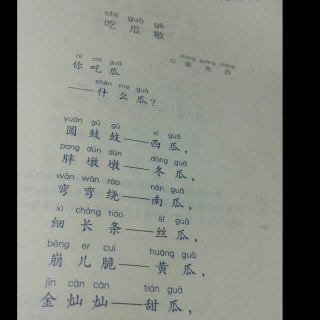 chī guā gē
吃瓜歌
zhāng guāng chāng
○ 张光昌
nǐ chī guā
你吃瓜
shén me guā
——什么瓜？
yuán gǔ gǔ xī guā
圆鼓鼓——西瓜，
pàng dūn dūn dōng guā
胖墩墩——冬瓜，
wān wān rào nán guā
弯弯绕——南瓜，
xì cháng tiáo sī guā
细长条——丝瓜，
bēng er cuì huáng guā
崩儿脆——黄瓜，
jīn càn càn tián guā
金灿灿——甜瓜，